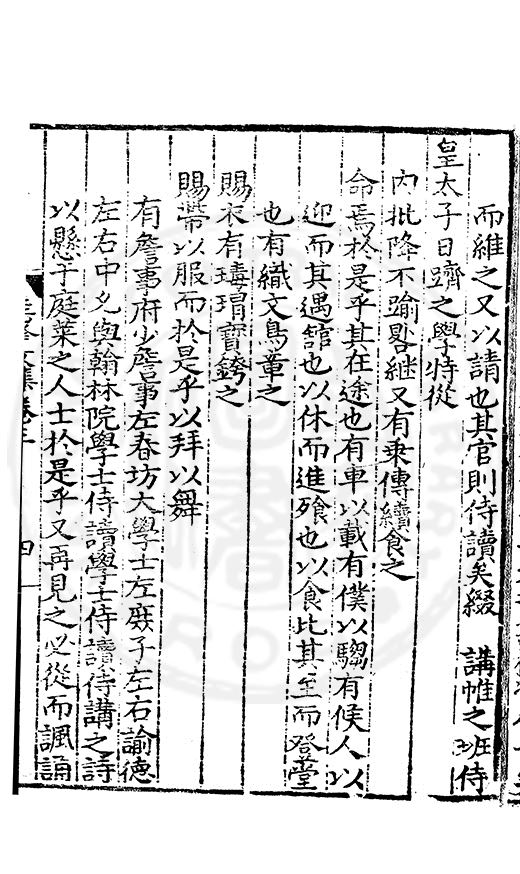 而維之又以請也其官則侍讀矣綴 講帷之班侍
皇太子日躋之學特從
內批降不踰晷継又有乗傳續食之
命焉於是乎其在途也有車以載有僕以騶有候人以
迎而其遇舘也以休而進飱也以食比其至而登堂
也有織文鳥章之
賜衣有瑇瑁寳銙之
賜帶以服而於是乎以拜以舞
有詹事府少詹事左春坊大學士左庶子左右諭德
左右中允與翰林院學士侍讀學士侍讀侍講之詩
以懸于庭萊之人士於是乎又再見之必從而諷誦
四